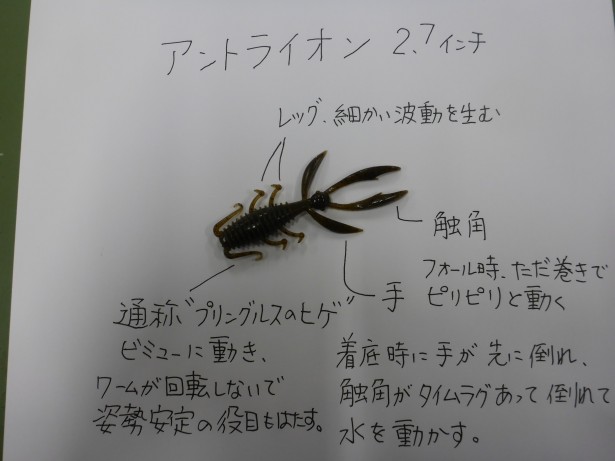 アントライオン 2.7インチ
レッグ.細かい波動を生む
触角
フォール時、ただ巻きで
ピリピリと動く
手
着底時に手が先に倒れ、
触角がタイムラグあって倒れて
水を動かす。
通称"プリングルスのヒゲ"
ビミューに動き、
ワームが回転しないで
姿勢安定の役目もはたす。